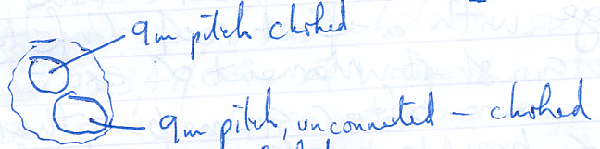 9m pitch choked
9m pitch, unconnected - choked